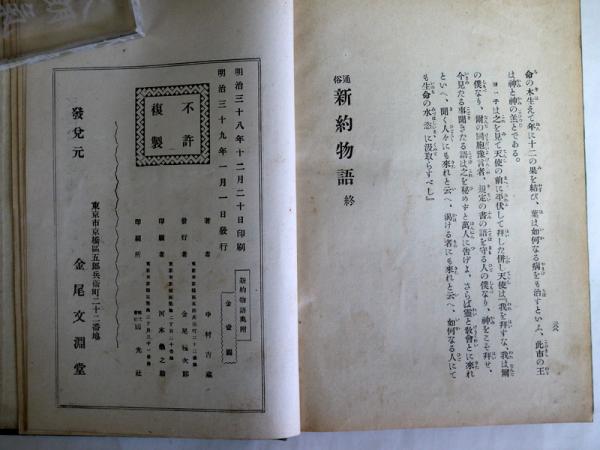 命の木生えて年に十二の果を結び、葉は如何なる病をも治すといふ、此市の王
は神と神の羔とである。
ヨハ子は之を見て天使の前に平伏して拜した併し天使は『我を拜すな、我は爾
の僕なり、爾の同胞豫言者、規定の書の語を守る人の僕なり、神をこそ拜せ、
今見たる事聞きたる語は之を秘めずと萬人に告げよ、さらば靈と敎會とに來れ
といへ、聞く人々にも來れと云へ、渴ける者にも來れと云へ、如何なる人にて
も生命の水、恣に汲取らすべし』
通俗 新約物語 終
明治三十八年十二月二十日印刷
明治三十九年一月一日發行
不許
複製
新約物語奥附
著者 中村吉藏
發行者 金尾
印刷者
印刷所
發兌元
東京市京橋區五郎兵衞町二十二番地
金尾文淵堂